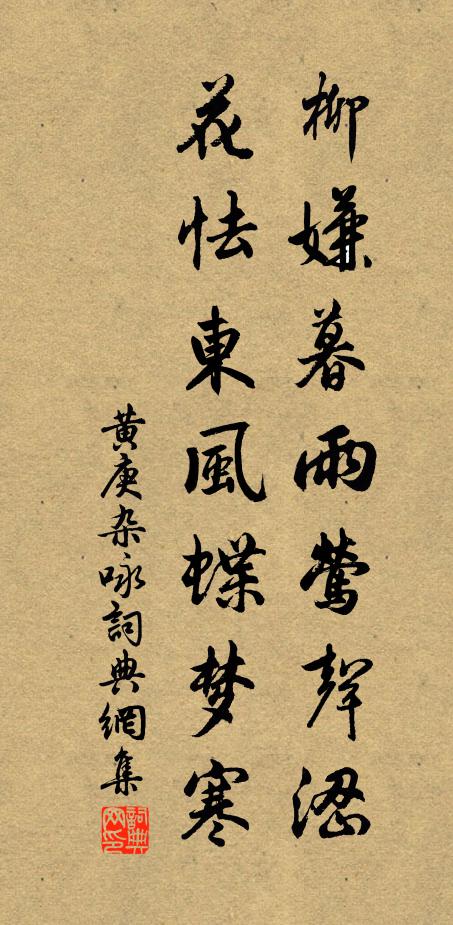 柳嫌暮雨鶯聲澀
花怯東風蝶梦寒
黄庚杂咏詞典網集
詞典网印